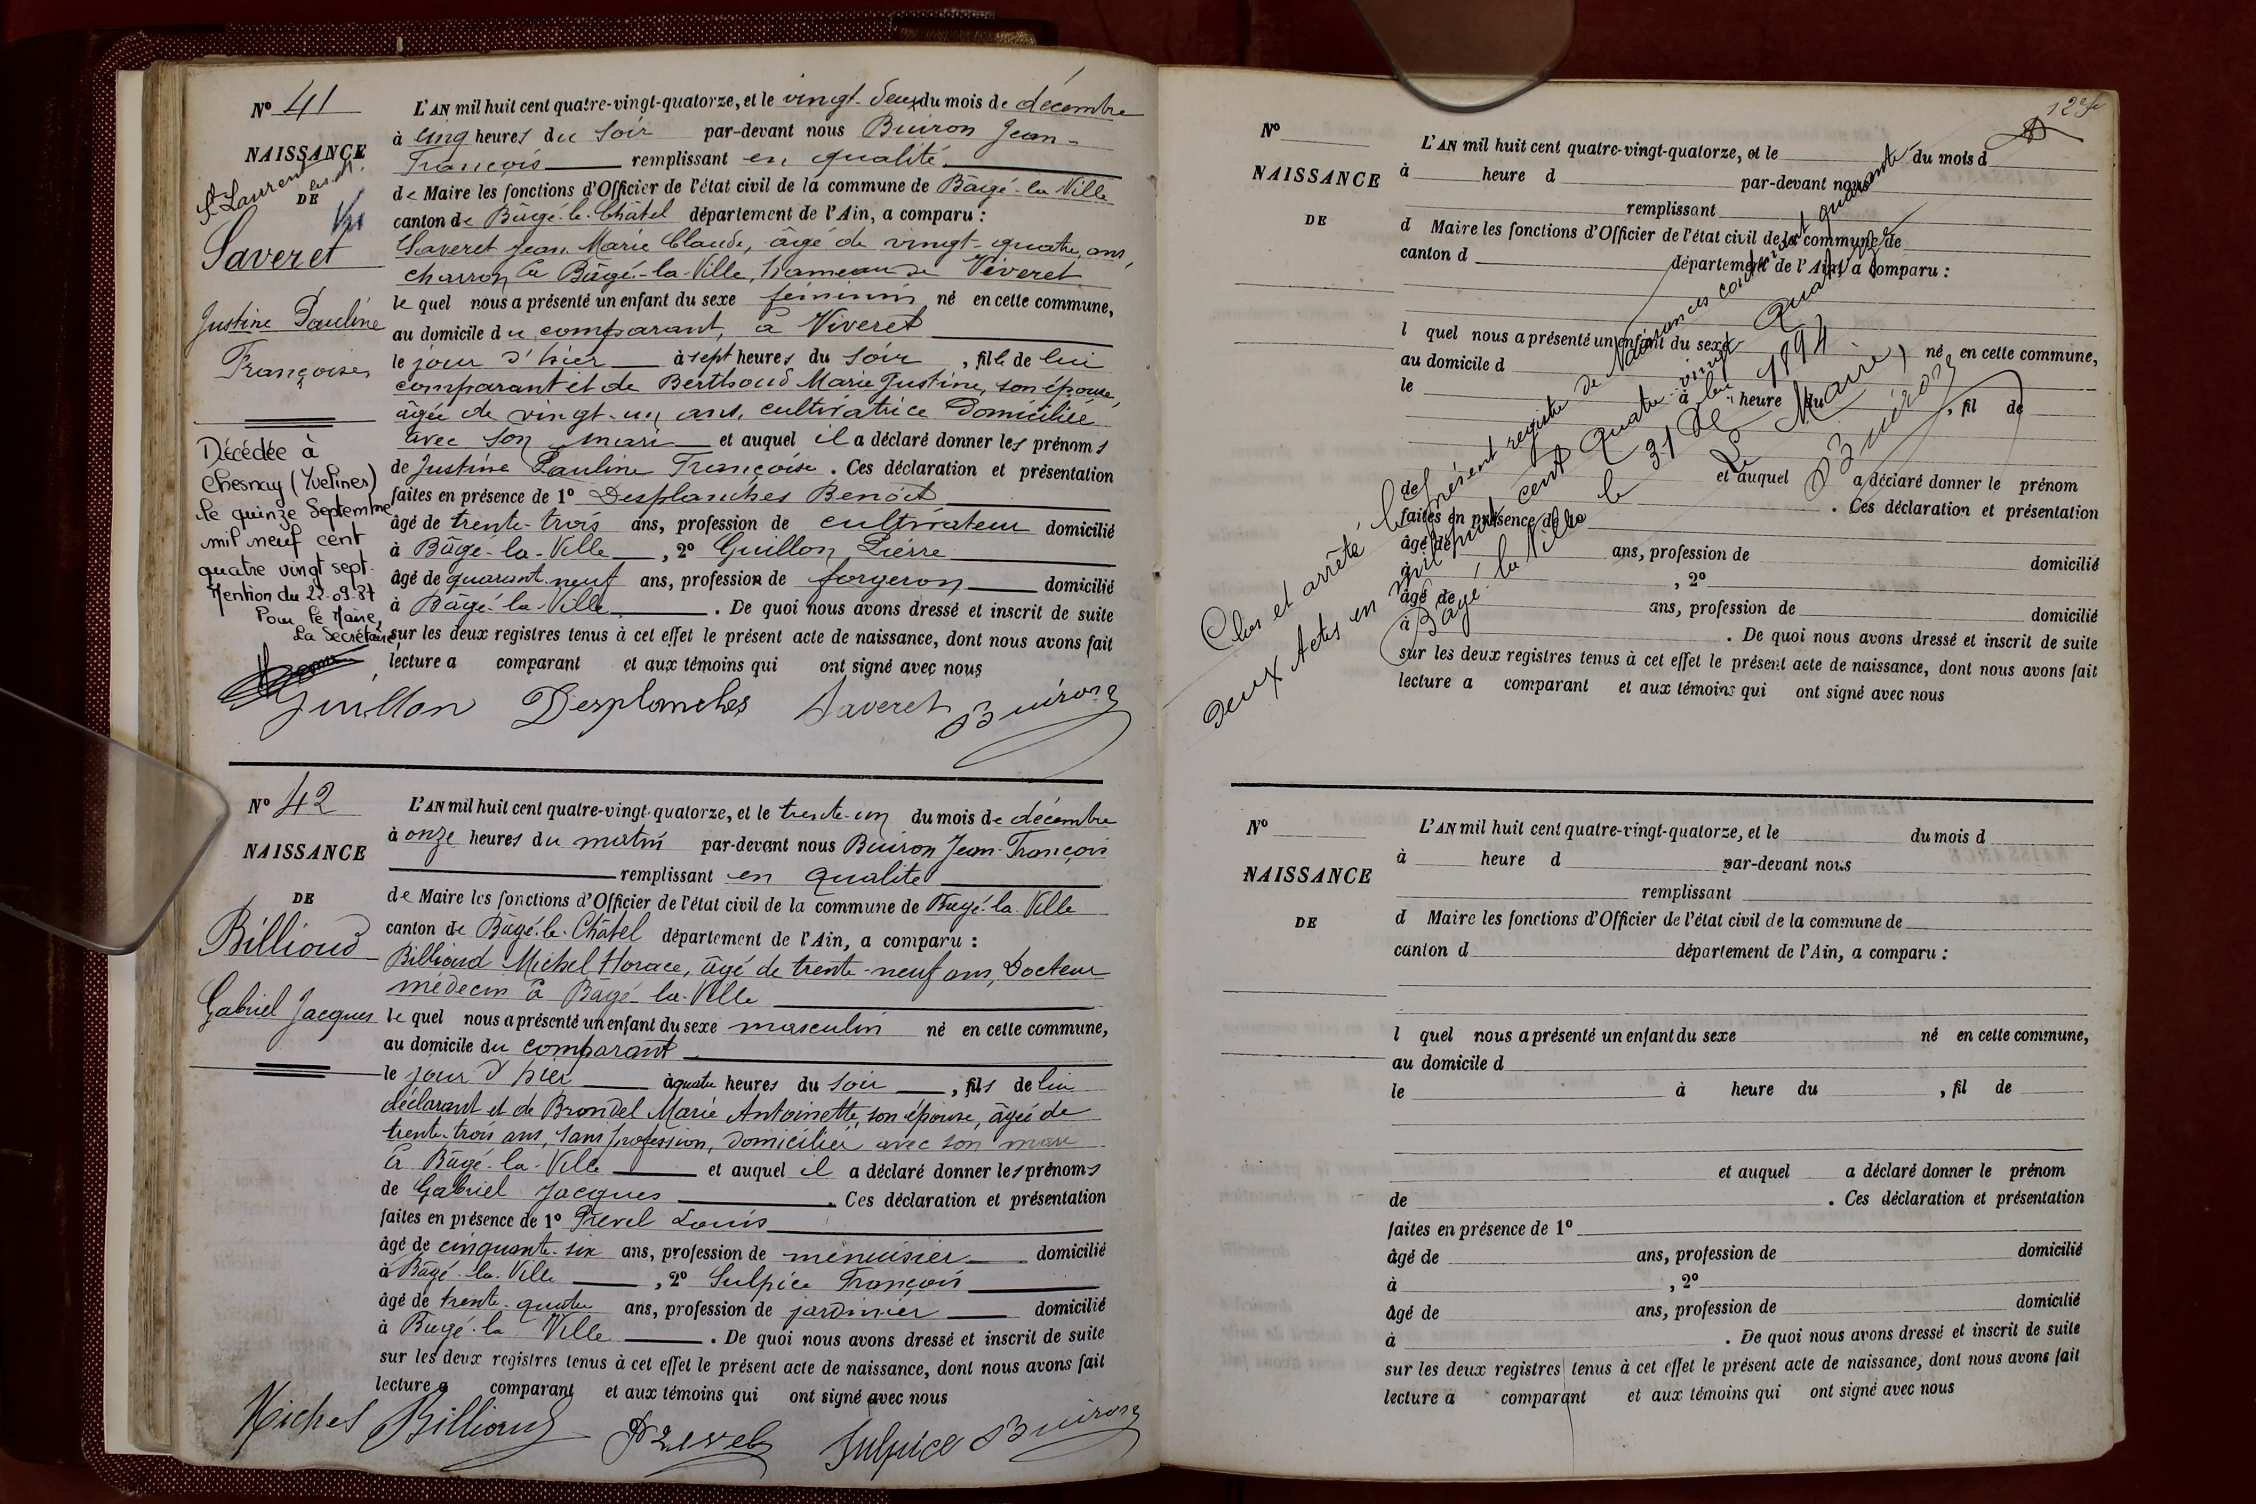 N° 41
NAISSANCE
St Laurent
DE
Saveret
Justine Pauline
Françoise
Décédée à
Chesnay (Yvelines)
le quinze Septembre
mil neuf cent
quatre vingt sept.
Mention du 22.09.87
Pour le Maire,
La Secrétaire
L'AN mil huit cent quatre-vingt-quatorze, et le vingt-deux du mois de décembre
à cinq heures du soir par-devant nous Buiron Jean-
François remplissant en qualité
de Maire les fonctions d'Officier de l'état civil de la commune de Bâgé-la-Ville
canton de Bâgé-le-Châtel département de l'Ain, a comparu :
Saveret Jean Marie Claude, âgé de vingt-quatre ans,
charron à Bâgé-la-Ville, hameau de Viveret
le quel nous a présenté un enfant du sexe féminin né en cette commune,
au domicile du comparant, à Viveret
le jour d'hier à sept heures du soir, fille de lui
comparant et de Berthoud Marie Justine, son épouse,
âgée de vingt-un ans, cultivatrice domiciliée
avec son mari et auquel il a déclaré donner les prénoms
de Justine Pauline Françoise. Ces déclaration et présentation
faites en présence de 1° Desplanches Benoît
âgé de trente-trois ans, profession de cultivateur domicilié
à Bâgé-la-Ville, 2° Guillon Pierre
âgé de quarant-neuf ans, profession de forgeron domicilié
à Bâgé-la-Ville. De quoi nous avons dressé et inscrit de suite
sur les deux registres tenus à cet effet le présent acte de naissance, dont nous avons fait
lecture a comparant et aux témoins qui ont signé avec nous
Guillon Desplanches Saveret Buiron
N° 42
NAISSANCE
DE
Billioud
Gabriel Jacques
L'AN mil huit cent quatre-vingt-quatorze, et le trente-un du mois de décembre
à onze heures du matin par-devant nous Buiron Jean-François
remplissant en qualité
de Maire les fonctions d'Officier de l'état civil de la commune de Bâgé-la-Ville
canton de Bâgé-le-Châtel département de l'Ain, a comparu :
Billioud Michel Horace, âgé de trente-neuf ans, Docteur
médecin à Bâgé-la-Ville
le quel nous a présenté un enfant du sexe masculin né en cette commune,
au domicile du comparant
le jour d'hier à quatre heures du soir, fils de lui
déclarant et de Brondel Marie Antoinette, son épouse, âgée de
trente-trois ans, sans profession, domiciliée avec son mari
à Bâgé-la-Ville et auquel il a déclaré donner les prénoms
de Gabriel Jacques. Ces déclaration et présentation
faites en présence de 1° Prevel Louis
âgé de cinquante-six ans, profession de menuisier domicilié
à Bâgé-la-Ville, 2° Sulpice François
âgé de trente-quatre ans, profession de jardinier domicilié
à Bâgé-la-Ville. De quoi nous avons dressé et inscrit de suite
sur les deux registres tenus à cet effet le présent acte de naissance, dont nous avons fait
lecture a comparant et aux témoins qui ont signé avec nous
Michel Billioud Prevel Sulpice Buiron
N°
NAISSANCE
DE
L'AN mil huit cent quatre-vingt-quatorze, et le du mois d
à heure d par-devant nous
remplissant
d Maire les fonctions d'Officier de l'état civil de la commune de
canton d département de l'Ain, a comparu :
l quel nous a présenté un enfant du sexe né en cette commune,
au domicile d
le à heure du , fil de
et auquel a déclaré donner le prénom
de . Ces déclaration et présentation
faites en présence de 1°
âgé de ans, profession de domicilié
à , 2°
âgé de ans, profession de domicilié
à . De quoi nous avons dressé et inscrit de suite
sur les deux registres tenus à cet effet le présent acte de naissance, dont nous avons fait
lecture a comparant et aux témoins qui ont signé avec nous
Clos et arrêté le présent registre de Naissances contenant quarante-
deux Actes en mil huit cent quatre-vingt Quatorze
à Bâgé-la-Ville le 31 Xbre 1894
Le Maire,
Buiron
N°
NAISSANCE
DE
L'AN mil huit cent quatre-vingt-quatorze, et le du mois d
à heure d par-devant nous
remplissant
d Maire les fonctions d'Officier de l'état civil de la commune de
canton d département de l'Ain, a comparu :
l quel nous a présenté un enfant du sexe né en cette commune,
au domicile d
le à heure du , fil de
et auquel a déclaré donner le prénom
de . Ces déclaration et présentation
faites en présence de 1°
âgé de ans, profession de domicilié
à , 2°
âgé de ans, profession de domicilié
à . De quoi nous avons dressé et inscrit de suite
sur les deux registres tenus à cet effet le présent acte de naissance, dont nous avons fait
lecture a comparant et aux témoins qui ont signé avec nous